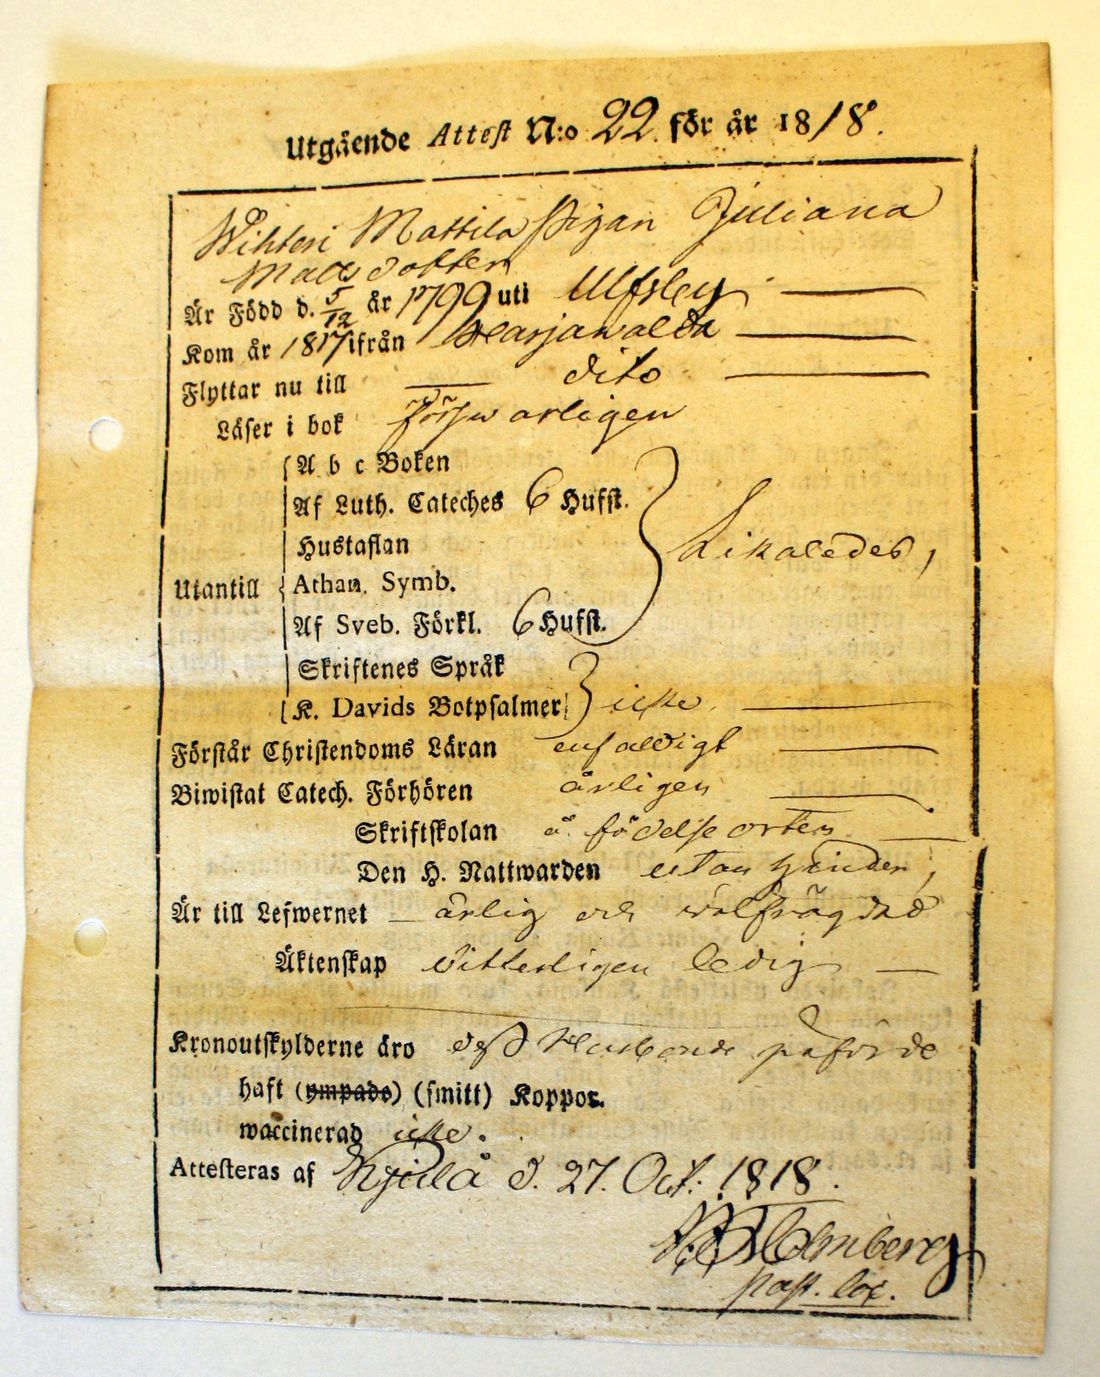 Utgående Attest N:o 22 för år 1818.
Wihteri Mattila Pigan Juliana
Matts dotter
Är Född d. 5/12 år 1799 uti Ulfsby
Kom år 1817 ifrån Harjawalda
Flyttar nu till — dito
Läser i bok förswarligen
A b c Boken
Af Luth. Cateches 6 Hufst.
Hustaflan
Likaledes,
Utantill
Athan. Symb.
Af Sveb. Förkl. 6 Hufst.
Skriftenes Språk
K. Davids Botpsalmer icke.
Förstår Christendoms Läran enfaldigt
Biwistat Catech. Förhören årligen
Skriftskolan å födelse orten
Den H. Nattwarden utan hinder,
Är till Lefwernet ärlig och wälfrägdad
Äktenskap witterligen ledig
Kronoutskylderne äro dess Husbonde påförde
haft (ympade) (smitt) Koppor.
waccinerad icke.
Attesteras af Kjulå d. 27. Oct: 1818.
Holmberg
past. loc.